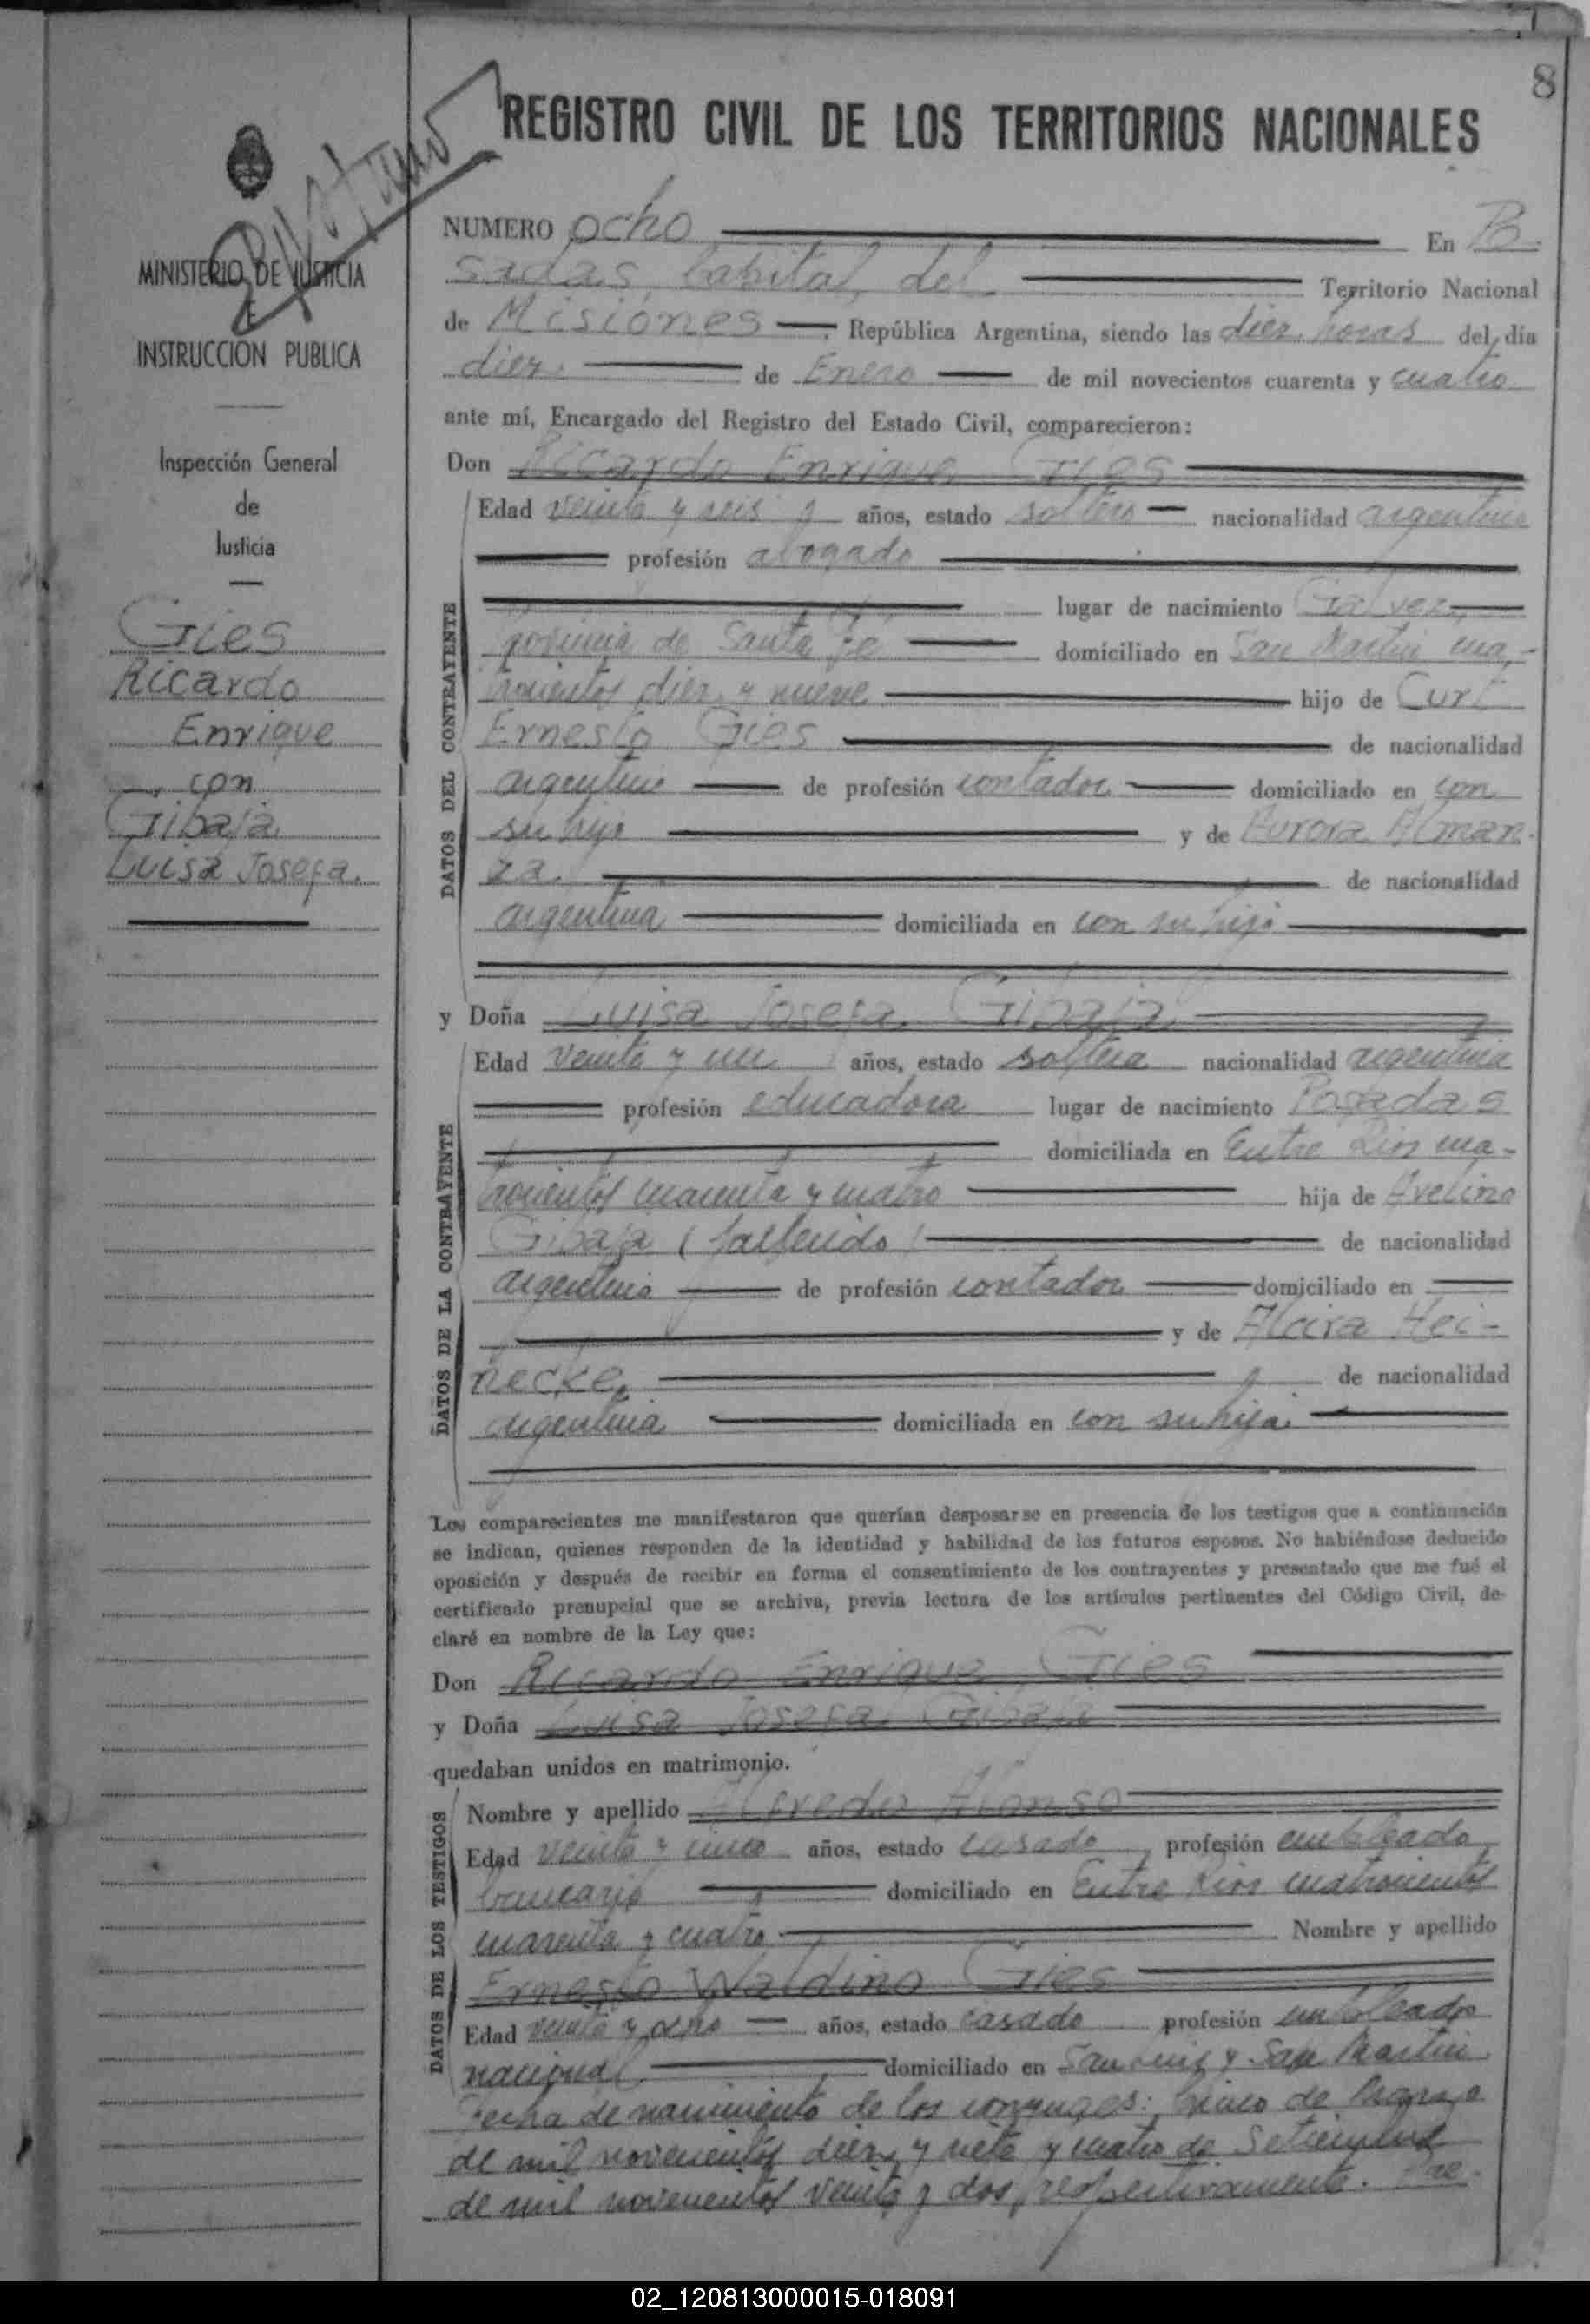 8
REGISTRO CIVIL DE LOS TERRITORIOS NACIONALES
MINISTERIO DE JUSTICIA
E
INSTRUCCION PUBLICA
Inspección General
de
Justicia
Gies
Ricardo
Enrique
con
Gibaja
Luisa Josefa.
NUMERO ocho En Po-
sadas, Capital del Territorio Nacional
de Misiones, República Argentina, siendo las diez horas del día
diez de Enero de mil novecientos cuarenta y cuatro
ante mí, Encargado del Registro del Estado Civil, comparecieron:
Don Ricardo Enrique Gies
DATOS DEL CONTRAYENTE
Edad veinte y seis años, estado soltero nacionalidad argentino
profesión abogado
lugar de nacimiento Galvez,
provincia de Santa Fe domiciliado en San Martin cua-
trocientos diez y nueve hijo de Curt
Ernesto Gies de nacionalidad
argentino de profesión contador domiciliado en con
su hijo y de Aurora Alman-
za de nacionalidad
argentina domiciliada en con su hijo
y Doña Luisa Josefa Gibaja
DATOS DE LA CONTRAYENTE
Edad veinte y un años, estado soltera nacionalidad argentina
profesión educadora lugar de nacimiento Posadas
domiciliada en Entre Rios cua-
trocientos cuarenta y cuatro hija de Avelino
Gibaja (fallecido) de nacionalidad
argentino de profesión contador domiciliado en
y de Alcira Hei-
necke, de nacionalidad
argentina domiciliada en con su hija.
Los comparecientes me manifestaron que querían desposarse en presencia de los testigos que a continuación
se indican, quienes responden de la identidad y habilidad de los futuros esposos. No habiéndose deducido
oposición y después de recibir en forma el consentimiento de los contrayentes y presentado que me fué el
certificado prenupcial que se archiva, previa lectura de los artículos pertinentes del Código Civil, de-
claré en nombre de la Ley que:
Don Ricardo Enrique Gies
y Doña Luisa Josefa Gibaja
quedaban unidos en matrimonio.
DATOS DE LOS TESTIGOS
Nombre y apellido Alfredo Alonso
Edad veinte y cinco años, estado casado profesión empleado
bancario domiciliado en Entre Rios cuatrocientos
cuarenta y cuatro Nombre y apellido
Ernesto Waldino Gies
Edad veinte y ocho años, estado casado profesión empleado
nacional domiciliado en San Luis y San Martin
Fecha de nacimiento de los conyuges: cinco de Marzo
de mil novecientos diez y siete y cuatro de Setiembre
de mil novecientos veinte y dos, respectivamente.
02_120813000015-018091